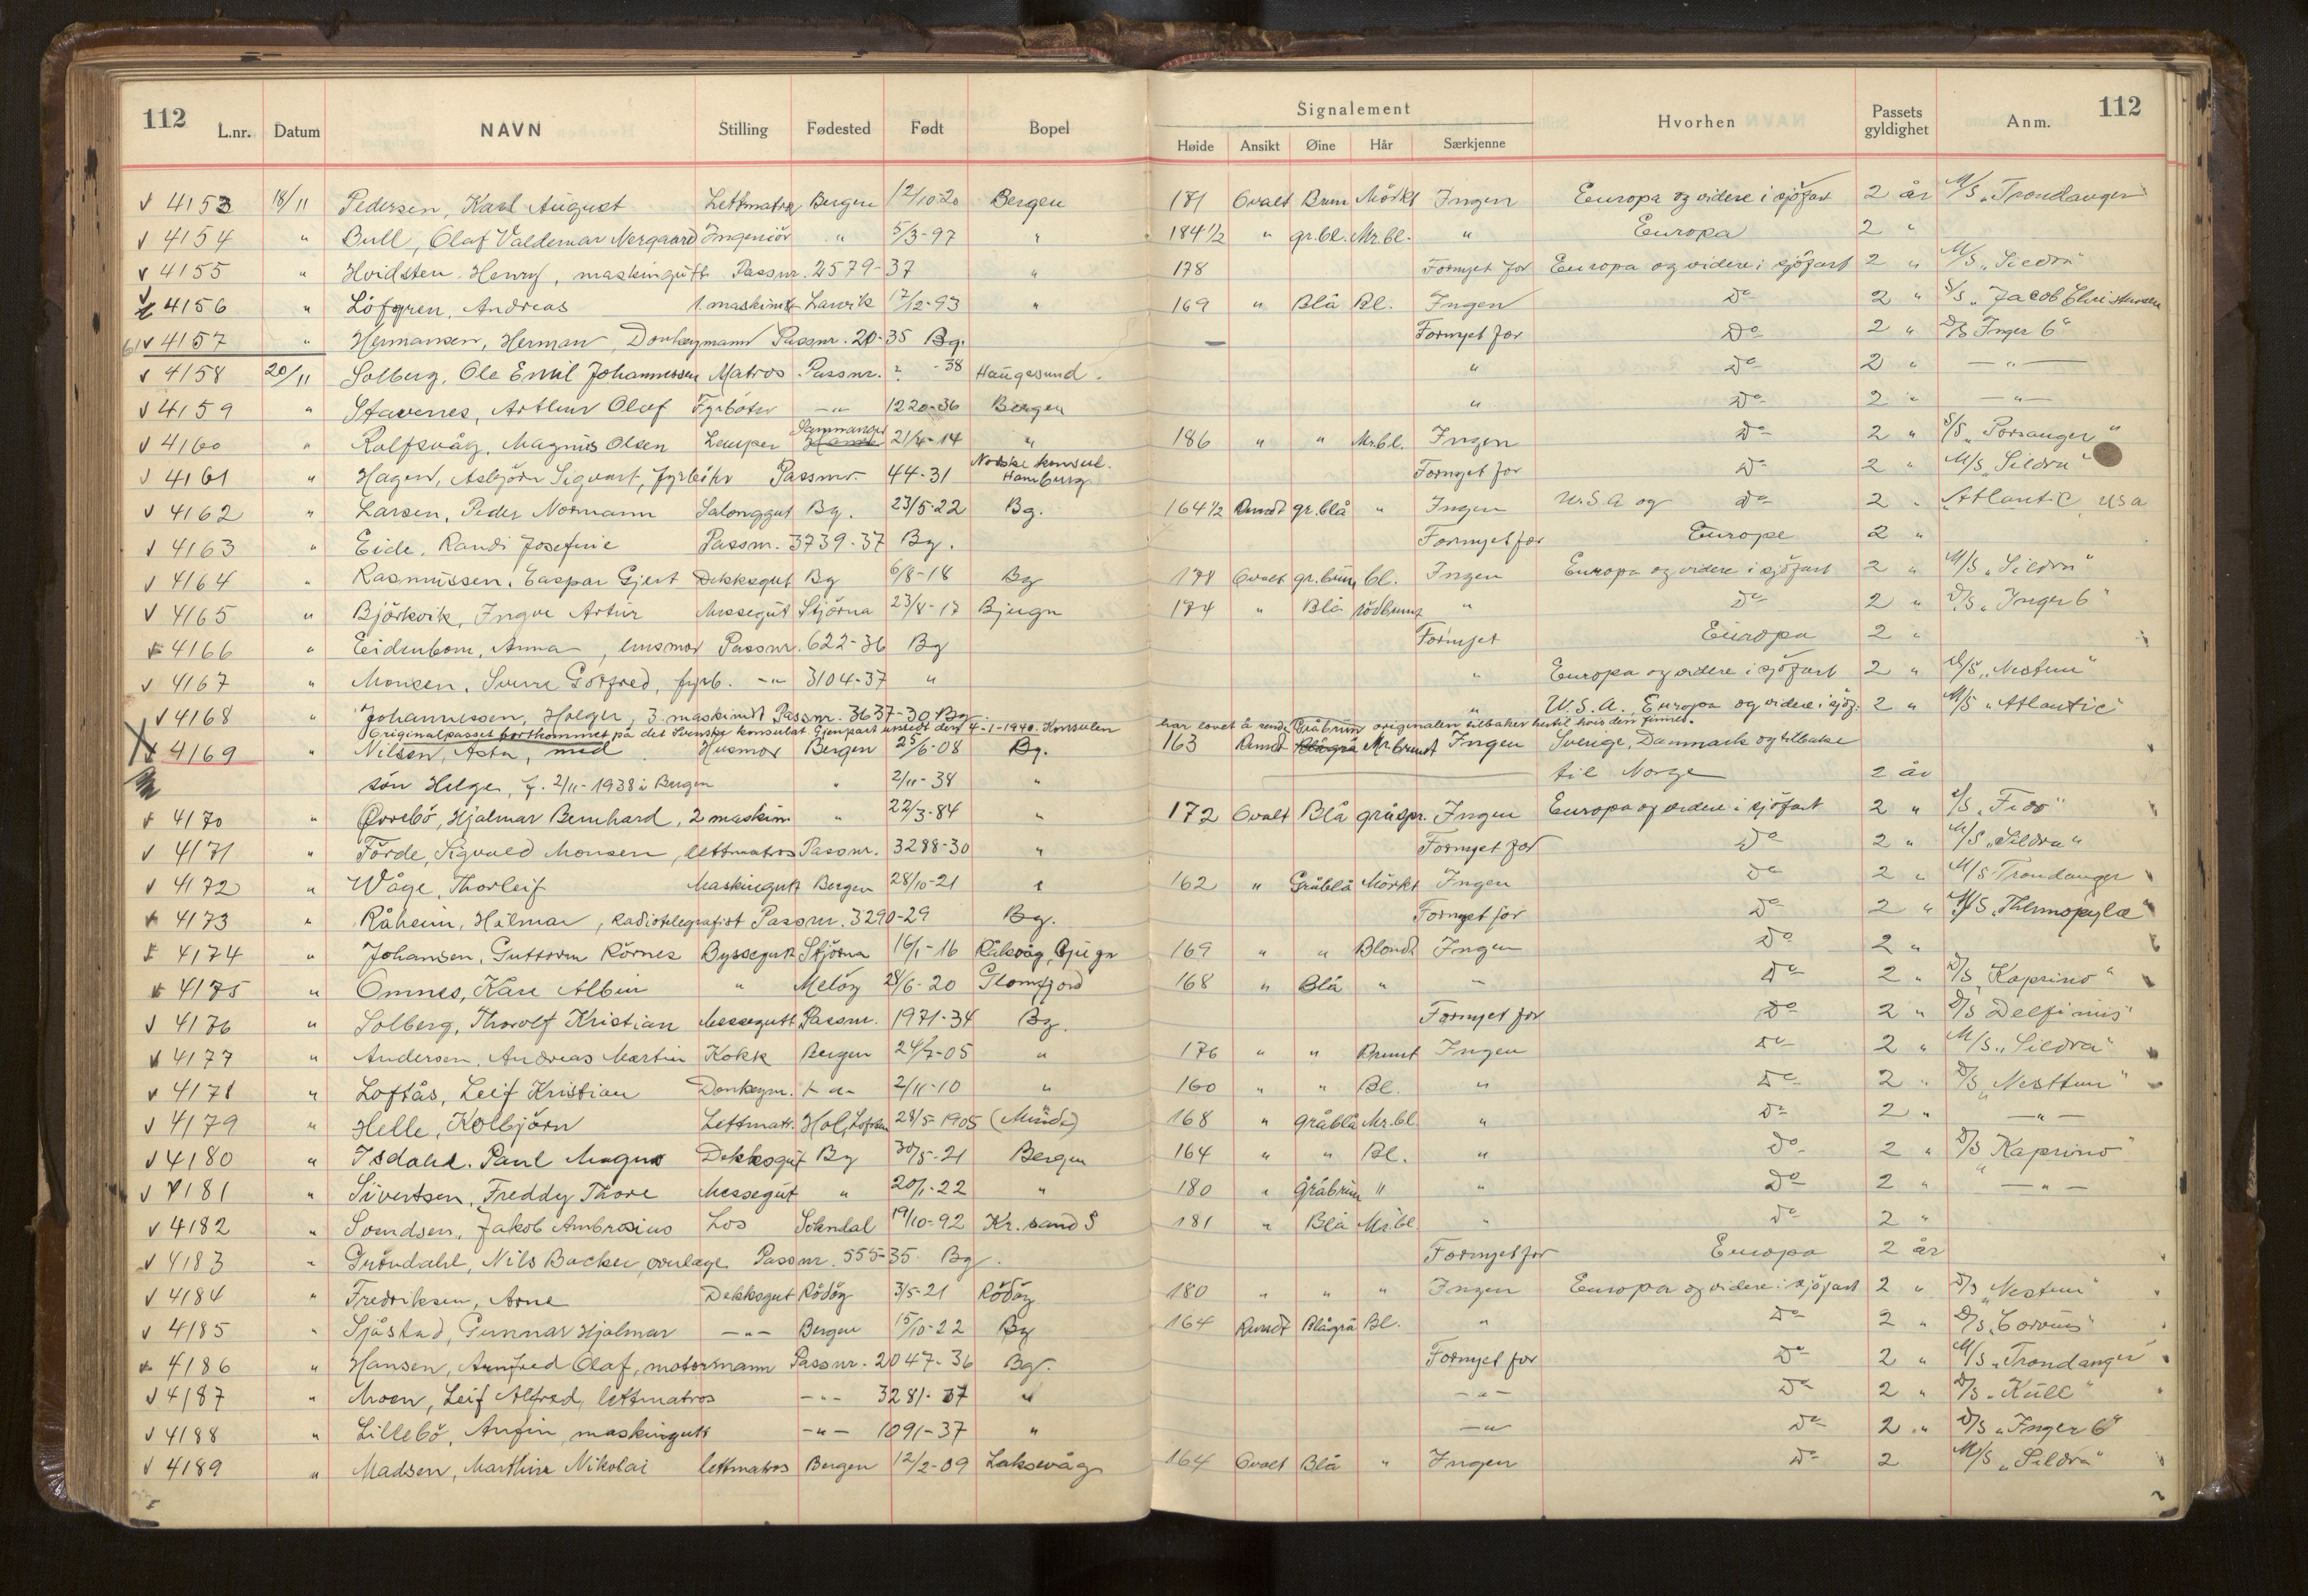 112 L.nr. Datum NAVN Stilling Fødested Født Bopel Signalement Høide Ansikt Øine Hår Særkjenne Hvorhen Passets gyldighet Anm. 112
4153 18/11 Pedersen, Karl August Lettmatros Bergen 12/10-20 Bergen 181 Ovalt Brun Mörkt Ingen Europa og videre i sjöfart 2 år M/S „Trondanger
4154 " Bull, Olaf Valdemar Nergaard Ingeniör " 5/3-97 " 184 1/2 " gr.bl. Mr.bl. " Europa 2 "
4155 " Hvidsten. Henry, maskingutt Passnr. 2579-37 " 178 Fornyet for Europa og videre i sjöfart 2 " M/S „Sildra"
4156 " Löfgren, Andreas 1. maskinist Larvik 17/12-93 " 169 " Blå Bl. Ingen Do 2 " S/S „Jacob Christensen
4157 " Hermansen, Herman, Donkeymann Passnr. 20-35 Bg. Fornyet for Do 2 " D/S Inger 6"
4158 20/11 Solberg, Ole Emil Johannessen Matros Passnr. ? -38 Haugesund. " Do 2 " — " —
4159 " Stavenes, Arthur Olaf Fyrböter — " 1220-36 Bergen " Do 2 " — " —
4160 " Rolfsvåg, Magnus Olsen Lemper 21/4-14 " 186 " " Mr.bl. Ingen Do 2 " S/S „Porsanger"
4161 " Hagen, Asbjörn Sigvart, fyrböter Passnr. 44-31 Norske konsul. Hamburg. Fornyet for Do 2 " M/S „Sildra"
4162 " Larsen, Peder Normann Salonggut Bg. 23/5-22 Bg. 164 1/2 Rundt gr.blå " Ingen U.S.A og do 2 " Atlantic USA
4163 " Eide, Randi Josefine Passnr. 3739-37 Bg. Fornyet for Europe 2 "
4164 " Rasmussen. Caspar Gjert Dekksgut Bg 6/8-18 Bg 178 Ovalt gr.brun bl. Ingen Europa og videre i sjöfart 2 " M/S „Sildra"
4165 " Björkvik, Ingve Artur Messegut Stjörna 23/8-17 Bjugn 174 " Blå rödbrunt " Do 2 " D/S „Inger 6"
4166 " Eidenbom, Anna, husmor Passnr. 622-36 Bg Fornyet Europa 2 "
4167 " Monsen. Sverre Gotfred, fyrb. -"- 3104-37 " " Europa og videre i sjöfart 2 " D/S „Nesttun"
4168 " Johannessen, Holger, 3. maskinist Passnr. 3637-30 Bg. " U.S.A. Europa og videre i sjöf. 2 " M/S „Atlantic"
Originalpasset bortkommet på det Svenske konsulat. Gjenpart utstedt den 4-1-1940. Konsulen har lovet å sende originalen tilbake hertil hvis den finnes.
4169 " Nilsen, Asta, med Husmor Bergen 25/6-08 Bg. 163 Rundt Gråbrun Mr.brunt Ingen Sverige, Danmark og tilbake
sön Helge, f. 2/11-1938 i Bergen " 2/11-38 " til Norge 2 år
4170 " Øvrebö, Hjalmar Bernhard, 2 maskin " 22/3-84 " 172 Ovalt Blå gråspr. Ingen Europa og videre i sjöfart 2 "
4171 " Förde, Sigvald Monsen, lettmatros Passnr. 3288-30 " Fornyet for Do 2 " M/S „Sildra"
4172 " Våge, Thorleif Maskingutt Bergen 28/10-21 " 162 " Gråblå Mörkt Ingen Do 2 " M/S Trondanger
4173 " Råheim, Hilmar, Radiotelegrafist Passnr. 3290-29 Bg. Fornyet for Do 2 " M/S „Thermopylæ"
4174 " Johansen, Guttorm Körnes Byssegutt Stjörna 16/1-16 Råkvåg, Bjugn 169 " " Blondt Ingen Do 2 "
4175 " Omnes, Kåre Albin " Melöy 28/6-20 Glomfjord 168 " Blå " " Do 2 " D/S „Kaprino"
4176 " Solberg, Thorolf Kristian Messegutt Passnr. 1971-34 Bg. Fornyet for Do 2 " D/S Delfinus"
4177 " Andersen, Andreas Martin Kokk Bergen 24/7-05 " 176 " " Brunt Ingen Do 2 " M/S „Sildra"
4178 " Loftås, Leif Kristian Donkeym. -"- 2/11-10 " 160 " " Bl. " Do 2 " D/S „Nesttun"
4179 " Helle, Kolbjörn Lettmatr. Hol, Lofoten 28/5-1905 168 " gråblå Mr.bl. " Do 2 " — " —
4180 " Isdahl. Paul Magnus Dekksgut Bg 30/5-21 Bergen 164 " " Bl. " Do 2 " D/S „Kaprino"
4181 " Sivertsen, Freddy Thore Messegut " 20/1-22 " 180 " gråbrun " " Do 2 " — " —
4182 " Jakob Ambrosius Los Sokndal 19/10-92 Kr.sand S 181 " Blå Mr.bl " Do 2 "
4183 " Gröndahl, Nils Backer, overlæge Passnr. 555-35 Bg. Fornyet for Europa 2 år
4184 " Fredriksen, Arne Dekksgut Rödöy 3/5-21 Rödöy 180 " " " Ingen Europa og videre i sjöfart 2 " D/S „Nesttun"
4185 " Sjåstad, Gunnar Hjalmar — " — Bergen 15/10-22 Bg 164 Rundt Blågrå Bl. " Do 2 " D/S „Corvus"
4186 " Hansen, Arnfred Olaf, motormann Passnr. 2047-36 Bg. Fornyet for Do 2 " M/S „Trondanger"
4187 " Moen, Leif Alfred, lettmatros -"- 3281-37 " — " — Do 2 " D/S „Kull"
4188 " Lillebö, Anfin, maskingutt — " — 1091-37 " — " Do 2 " D/S „Inger 6"
4189 " Madsen, Marthin Nikolai lettmatros Bergen 12/2-09 Laksevåg 164 Ovalt Blå " Ingen Do 2 M/S „Sildra"